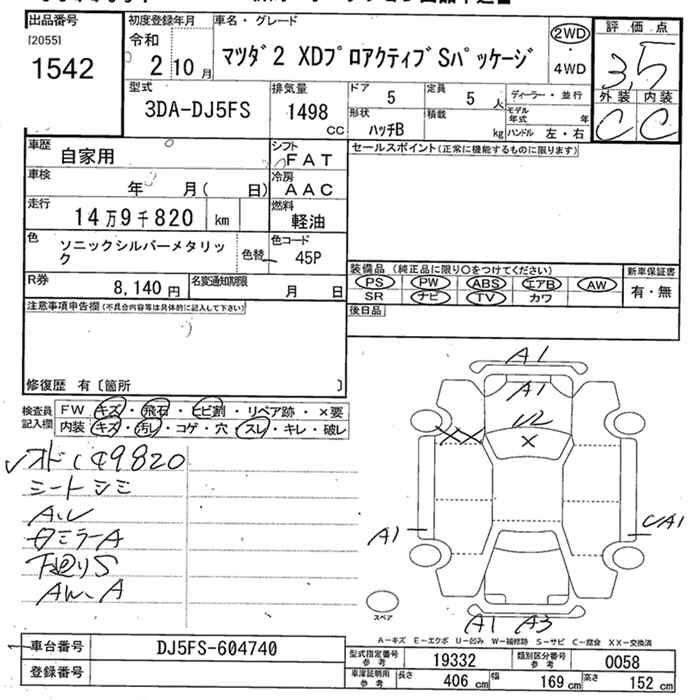 出品番号 初度登録年月 車名・グレード 評価点
[2055] 令和 2WD
1542 2 10月 マツダ2 XDプロアクティブSパッケージ ・ 3.5
4WD
型式 排気量 ドア 5 定員 5 人 ディーラー・並行 外装 内装
3DA-DJ5FS 1498 CC 形状 ハッチB 積載 kg モデル年式 年 C C
ハンドル 左・右
車歴 自家用 シフト FAT セールスポイント(正常に機能するものに限ります)
車検 年 月( 日) 冷房 AAC
走行 14万9千820 km 燃料 軽油
色 ソニックシルバーメタリック 色替 色コード 45P
装備品 (純正品に限り○をつけてください) 新車保証書
R券 8,140円 名変通知期限 月 日 PS PW ABS エアB AW 有・無
SR ナビ TV カワ
注意事項申告欄(不具合内容等は具体的に記入して下さい) 後日品
修復歴 有〔箇所 〕
検査員記入欄 FW キズ・飛石・ヒビ割・リペア跡・×要
内装 キズ・汚レ・コゲ・穴・スレ・キレ・破レ
シートシミ
下廻りS
AW、A
A1
A1
U2
×
XX
A1
UA1
A1 A3
スペア
A-キズ E-エクボ U-凹み W-補修跡 S-サビ C-腐食 XX-交換済
車台番号 DJ5FS-604740 型式指定番号 参考 19332 類別区分番号 参考 0058
登録番号 車庫証明用 参考 長さ 406 cm 幅 169 cm 高さ 152 cm